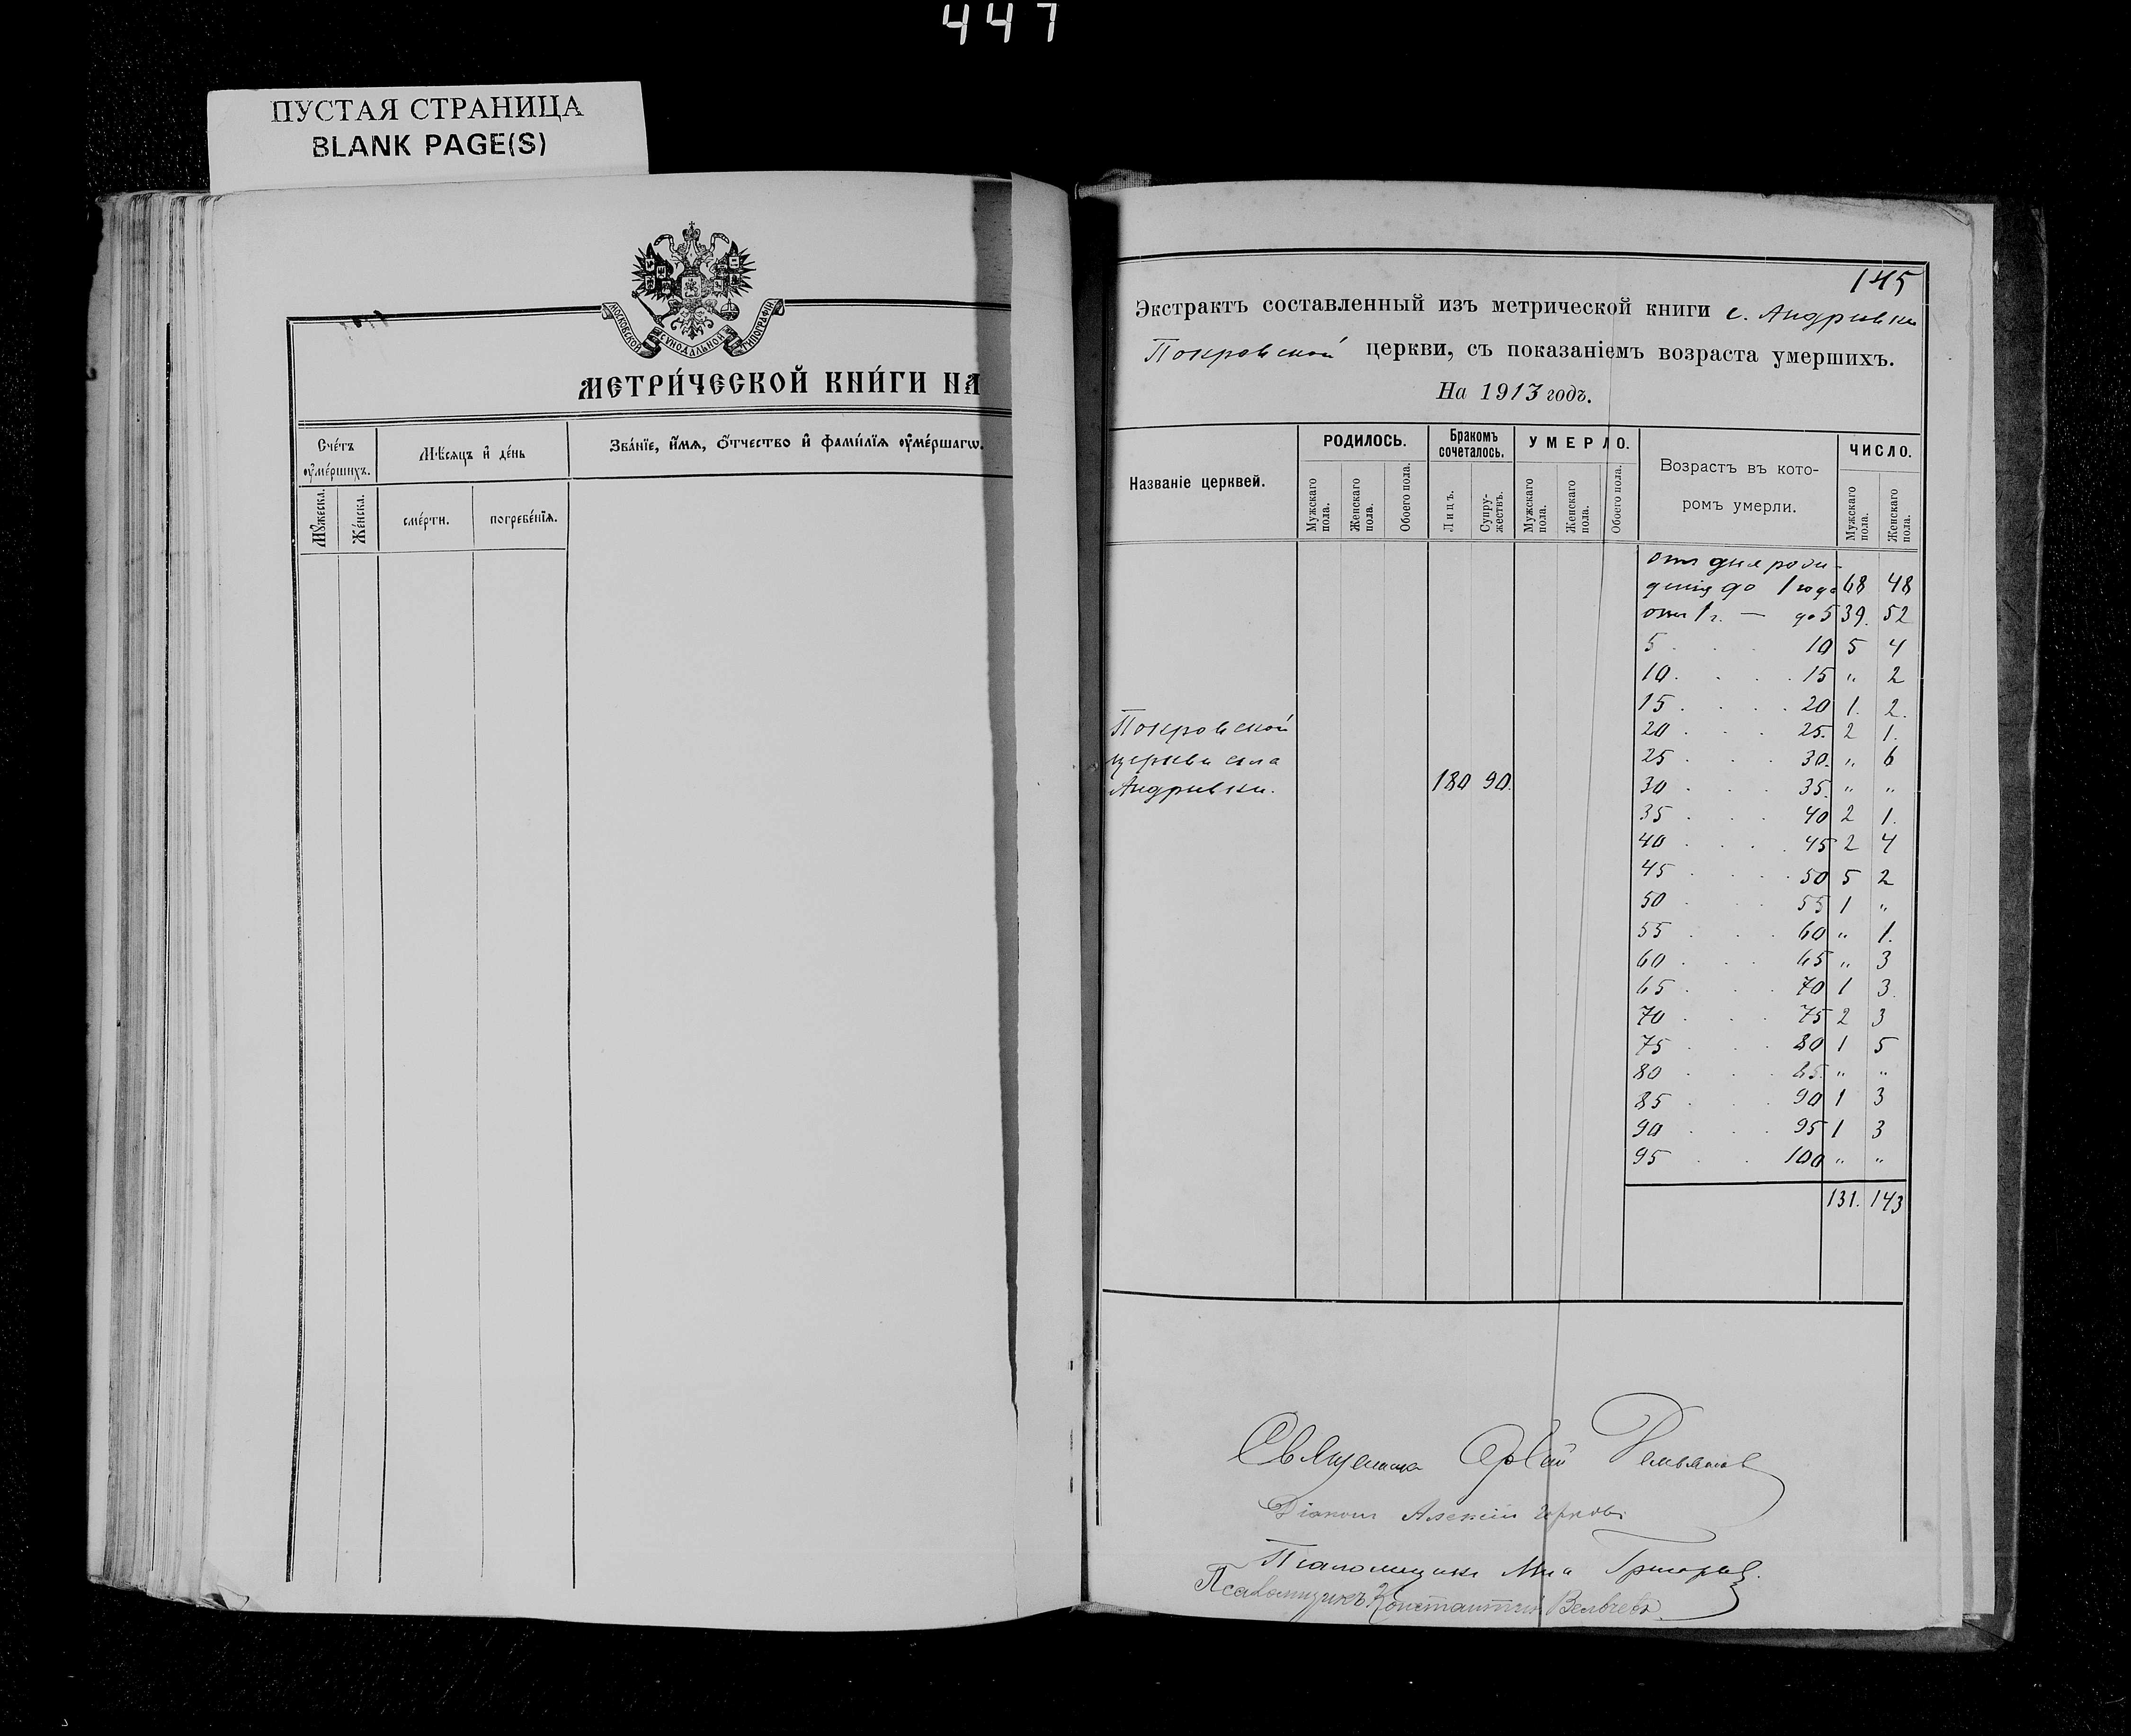 447
ПУСТАЯ СТРАНИЦА
BLANK PAGE(S)
МОСКОВСКОЙ СѴНОДАЛЬНОЙ ТИПОГРАФІИ
МЕТРИ́ЧЕСКОЙ КНИ́ГИ НА
Сче́тъ ᲂумéршихъ.
Мѣ́сяцъ и де́нь
Зва́нїе, и́мѧ, о́тчество и фами́лїѧ ᲂумéршагѡ.
Мꙋ́жеска.
Же́нска.
сме́рти.
погребе́нїѧ.
145
Экстрактъ составленный изъ метрической книги с. Андривки
Покровской церкви, съ показаніемъ возраста умершихъ.
На 1913 годъ.
Названіе церквей.
РОДИЛОСЬ.
Бракомъ сочеталось.
УМЕРЛО.
Возрастъ въ которомъ умерли.
ЧИСЛО.
Мужскаго пола.
Женскаго пола.
Обоего пола.
Лицъ.
Супружествъ.
Мужскаго пола.
Женскаго пола.
Обоего пола.
Мужскаго пола.
Женскаго пола.
отъ дня рож-
денія до 1 года 68 48
отъ 1 г. — до 5 39. 52
5 . . . 10 5 4
10 . . . . 15 " 2
15 . . . . 20 1. 2.
20 . . . 25. 2 1.
25 . . . 30. " 6
30 . . . 35. " "
35 . . . 40 2 1.
40 . . . . 45 2 4
45 . . . . 50 5 2
50 . . . 55 1 "
55 . . . 60 " 1.
60 . . . 65 " 3
65 . . . 70 1 3.
70 . . . 75 2 3
75 . . . 80 1 5
80 . . . 85. " "
85 . . . 90 1 3
90 . . . 95 1 3
95 . . 100 " "
131. 143
Покровской
церкви села
Андривки.
180 90.
Священникъ
Діаконъ Алексій
Псаломщикъ Григорьев.
Псаломщикъ Константинъ Вельчевъ